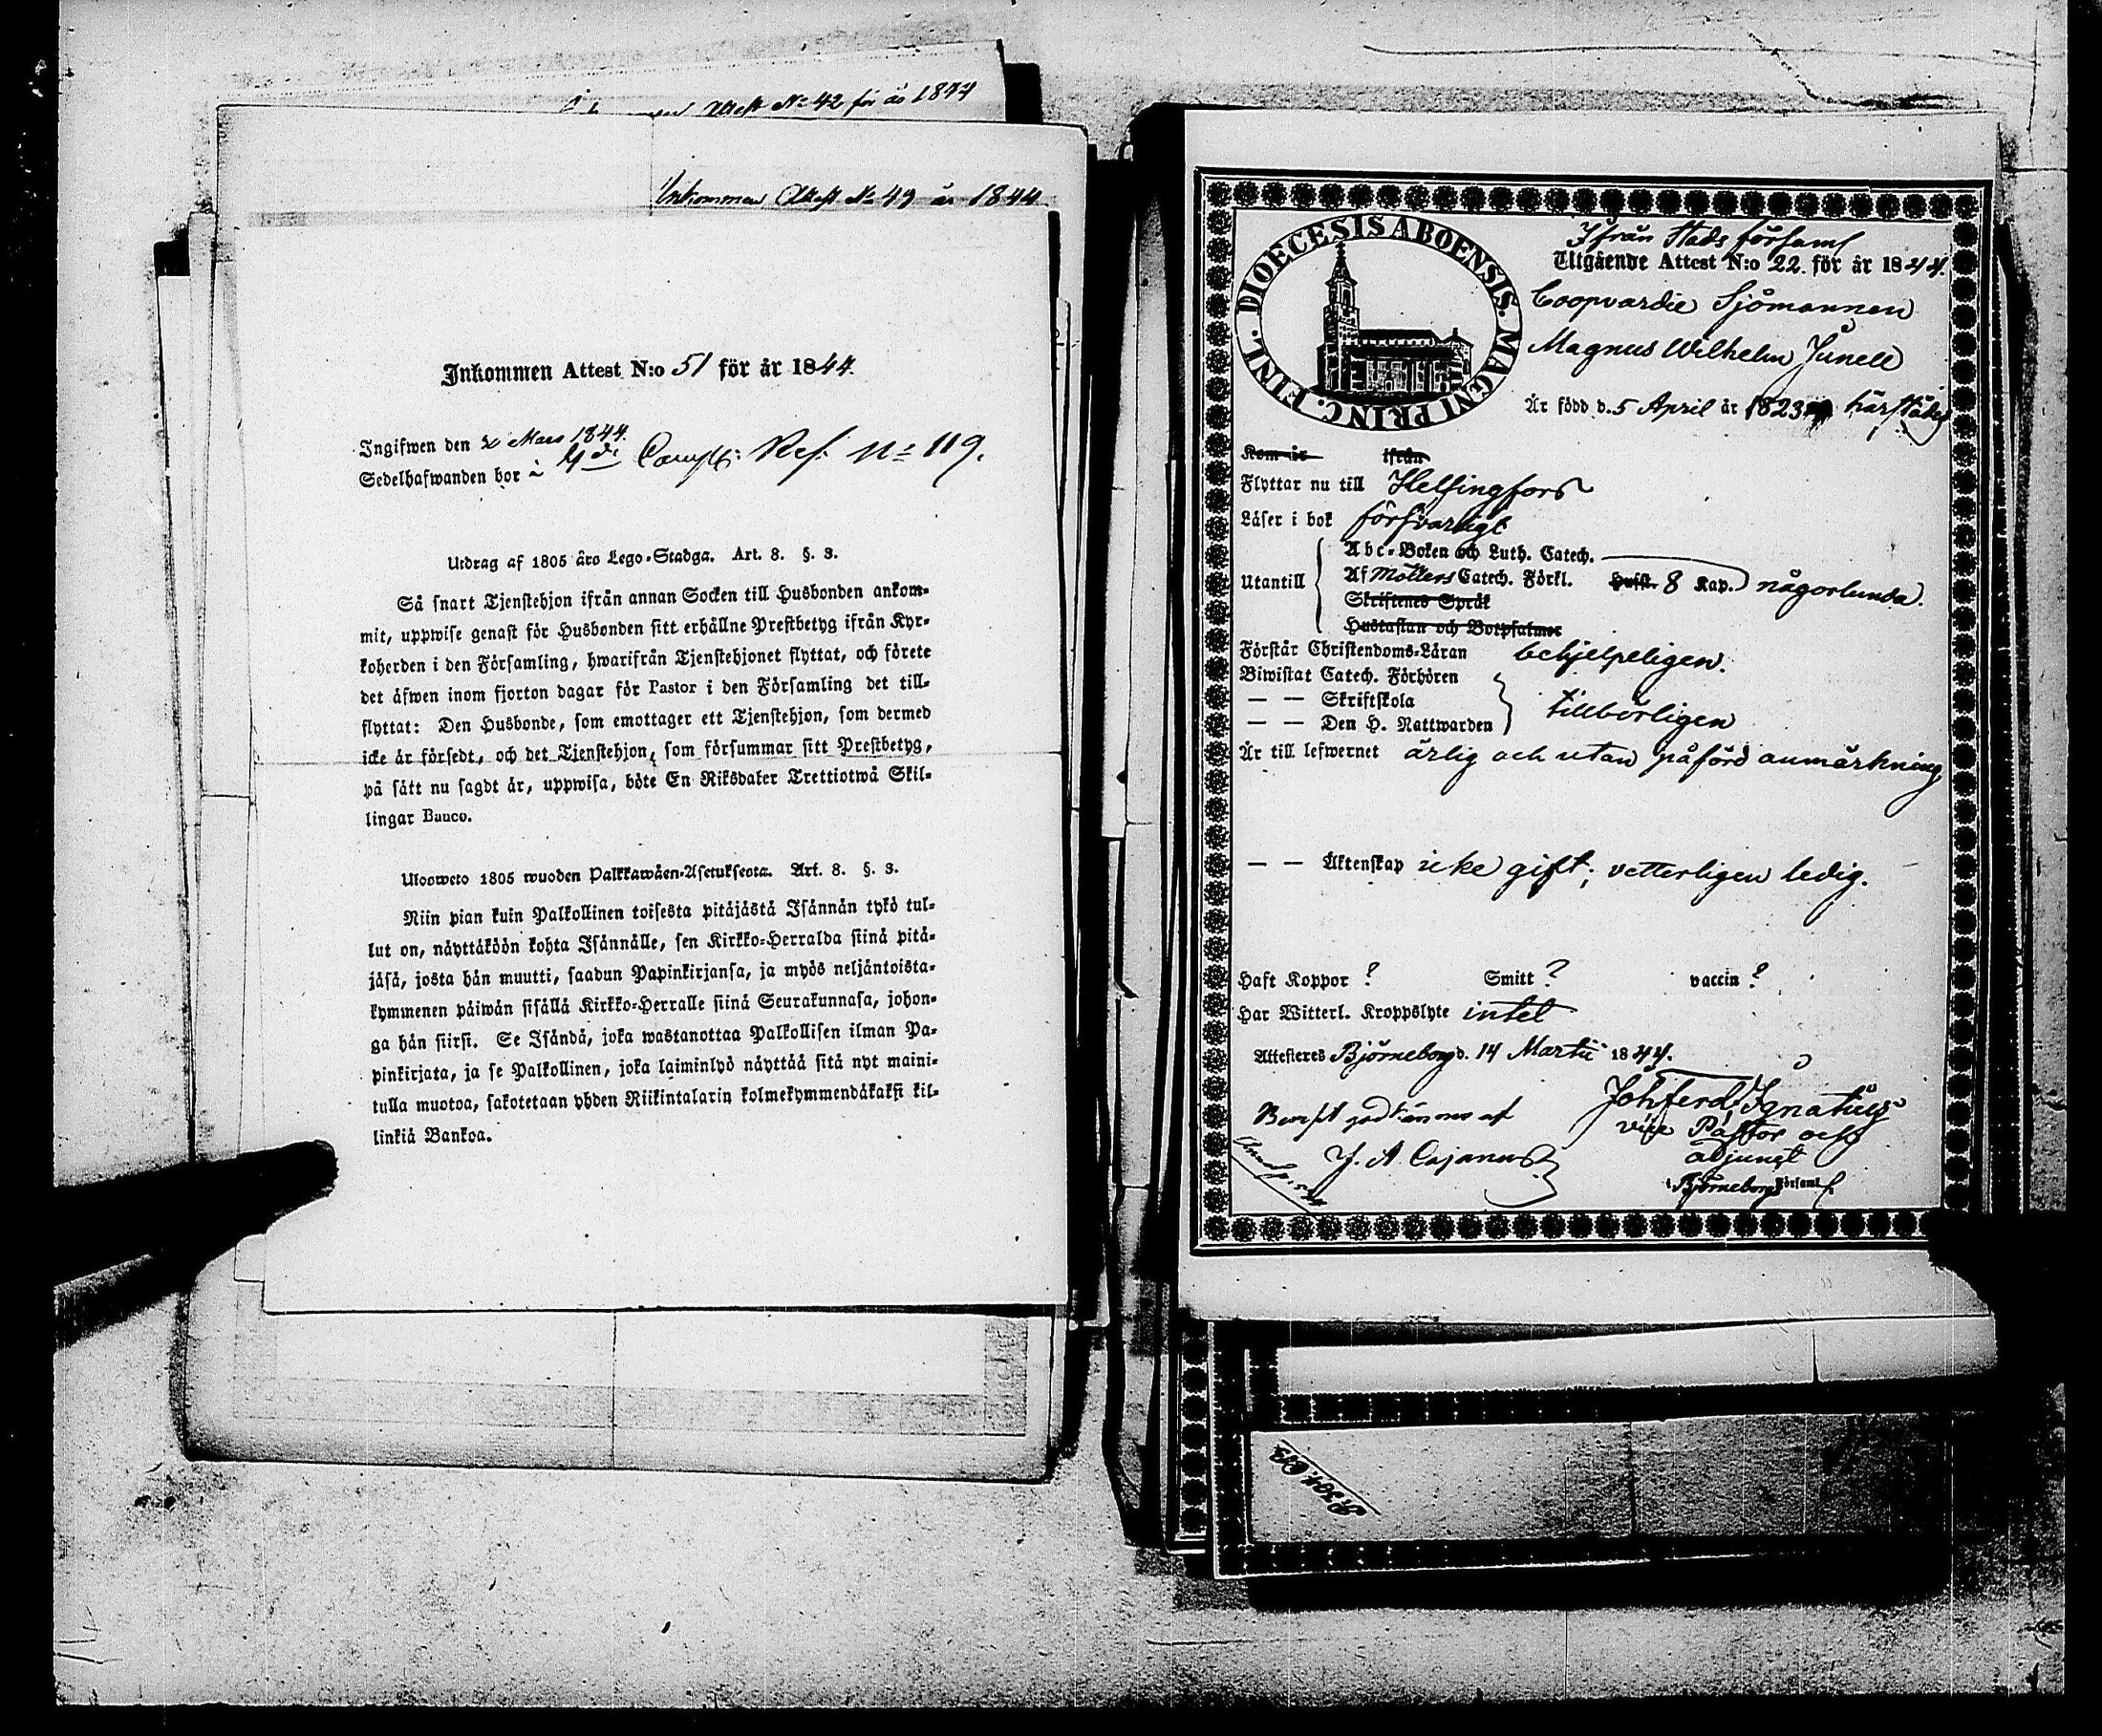 Attest No 42 för år 1844
Inkommen Attest No 49 år 1844
Inkommen Attest N:o 51 för år 1844.
Ingifwen den Mars 1844.
Sedelhafwanden bor i No 119.
Utdrag af 1805 års Lego-Stadga. Art. 8. §. 3.
Så snart Tjenstehjon ifrån annan Socken till Husbonden ankom-
mit, uppwise genast för Husbonden sitt erhållne Prestbetyg ifrån Kyr-
koherden i den Församling, hwarifrån Tjenstehjonet flyttat, och förete
det äfwen inom fjorton dagar för Pastor i den Församling det till-
flyttat: Den Husbonde, som emottager ett Tjenstehjon, som dermed
icke är försedt, och det Tjenstehjon, som försummar sitt Prestbetyg,
på sätt nu sagdt är, uppwisa, böte En Riksdaler Trettiotwå Skil-
lingar Banco.
Ulosweto 1805 wuoden Palkkawäen-Asetuksesta. Art. 8. §. 3.
Niin pian kuin Palkollinen toisesta pitäjästä Isännän tykö tul-
lut on, näyttäköön kohta Isännälle, sen Kirkko-Herralda siinä pitä-
jäsä, josta hän muutti, saadun Papinkirjansa, ja myös neljäntoista-
kymmenen päiwän sisällä Kirkko-Herralle siinä Seurakunnasa, johon-
ga hän siirsi. Se Isändä, joka wastanottaa Palkollisen ilman Pa-
pinkirjata, ja se Palkollinen, joka laiminlyö näyttää sitä nyt maini-
tulla muotoa, sakotetaan yhden Riikintalarin kolmekymmendäkaksi kil-
linkiä Bankoa.
DIOECESIS ABOENSIS. MAGNI PRINC. FINL.
Ifrån Stads församl
Utgående Attest N:o 22. för år 1844.
Coopvardie Sjömannen
Magnus Wilhelm Junell
Är född d. 5 April år 1823 härstädes
Kom år ifrån
Flyttar nu till Helsingfors
Läser i bok försvarligt
Utantill
Abc-Boken och Luth. Catech.
Af Möllers Catech. Förkl. Hufst. 8 Kap. någorlunda.
Skriftenes Språk
Hustaflan och Botpsalmer
Förstår Christendoms-Läran behjelpeligen.
Biwistat Catech. Förhören
— — Skriftskola
— — Den H. Nattwarden
tillbörligen
Är till lefwernet ärlig och utan påförd anmärkning
— — Äktenskap icke gift; vetterligen ledig.
Haft Koppor ? Smitt ? vaccin ?
Har Witterl. Kroppslyte intet
Attesteras Björneborg d. 14 Martii 1844.
Joh Ferd Ignatius
vice Pastor och
adjunct
i Björneborgs Församl.
godkännes af
J. A. Cajanus